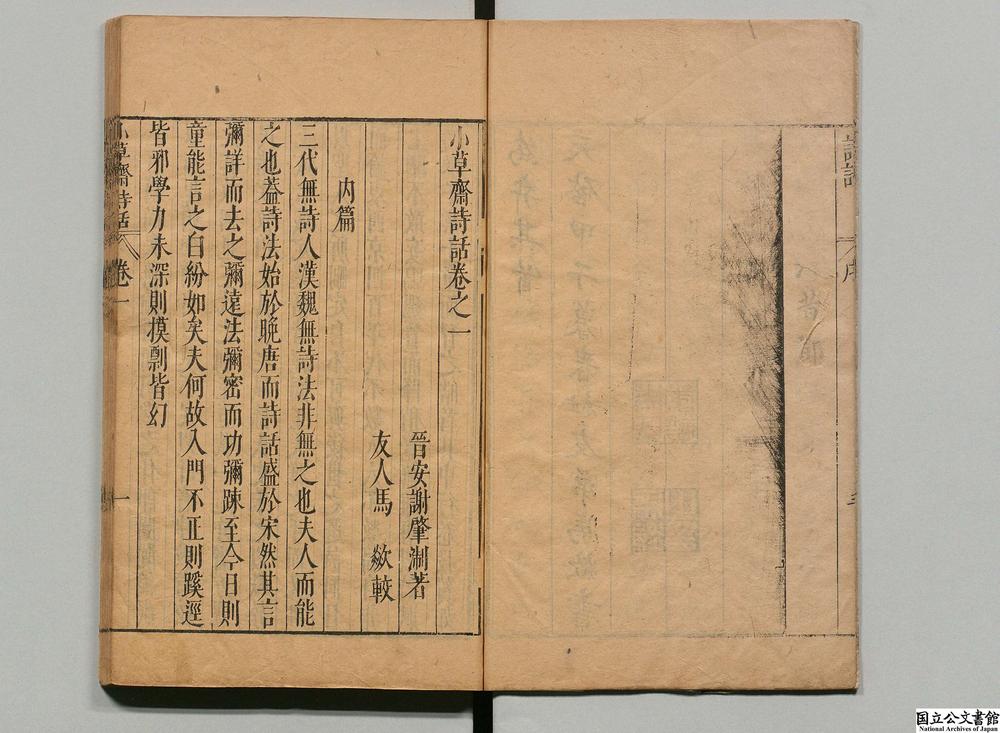 詩話
序
小草齋詩話卷之一
晉安謝肇淛著
友人馬 歘較
內篇
三代無詩人漢魏無詩法非無之也夫人而能
之也葢詩法始於晚唐而詩話盛於宋然其言
彌詳而去之彌遠法彌密而功彌踈至今日則
童能言之白紛如矣夫何故入門不正則蹊逕
皆邪學力未深則摸剽皆幻
小草齋詩話
卷一
一
国立公文書館
National Archives of Japan